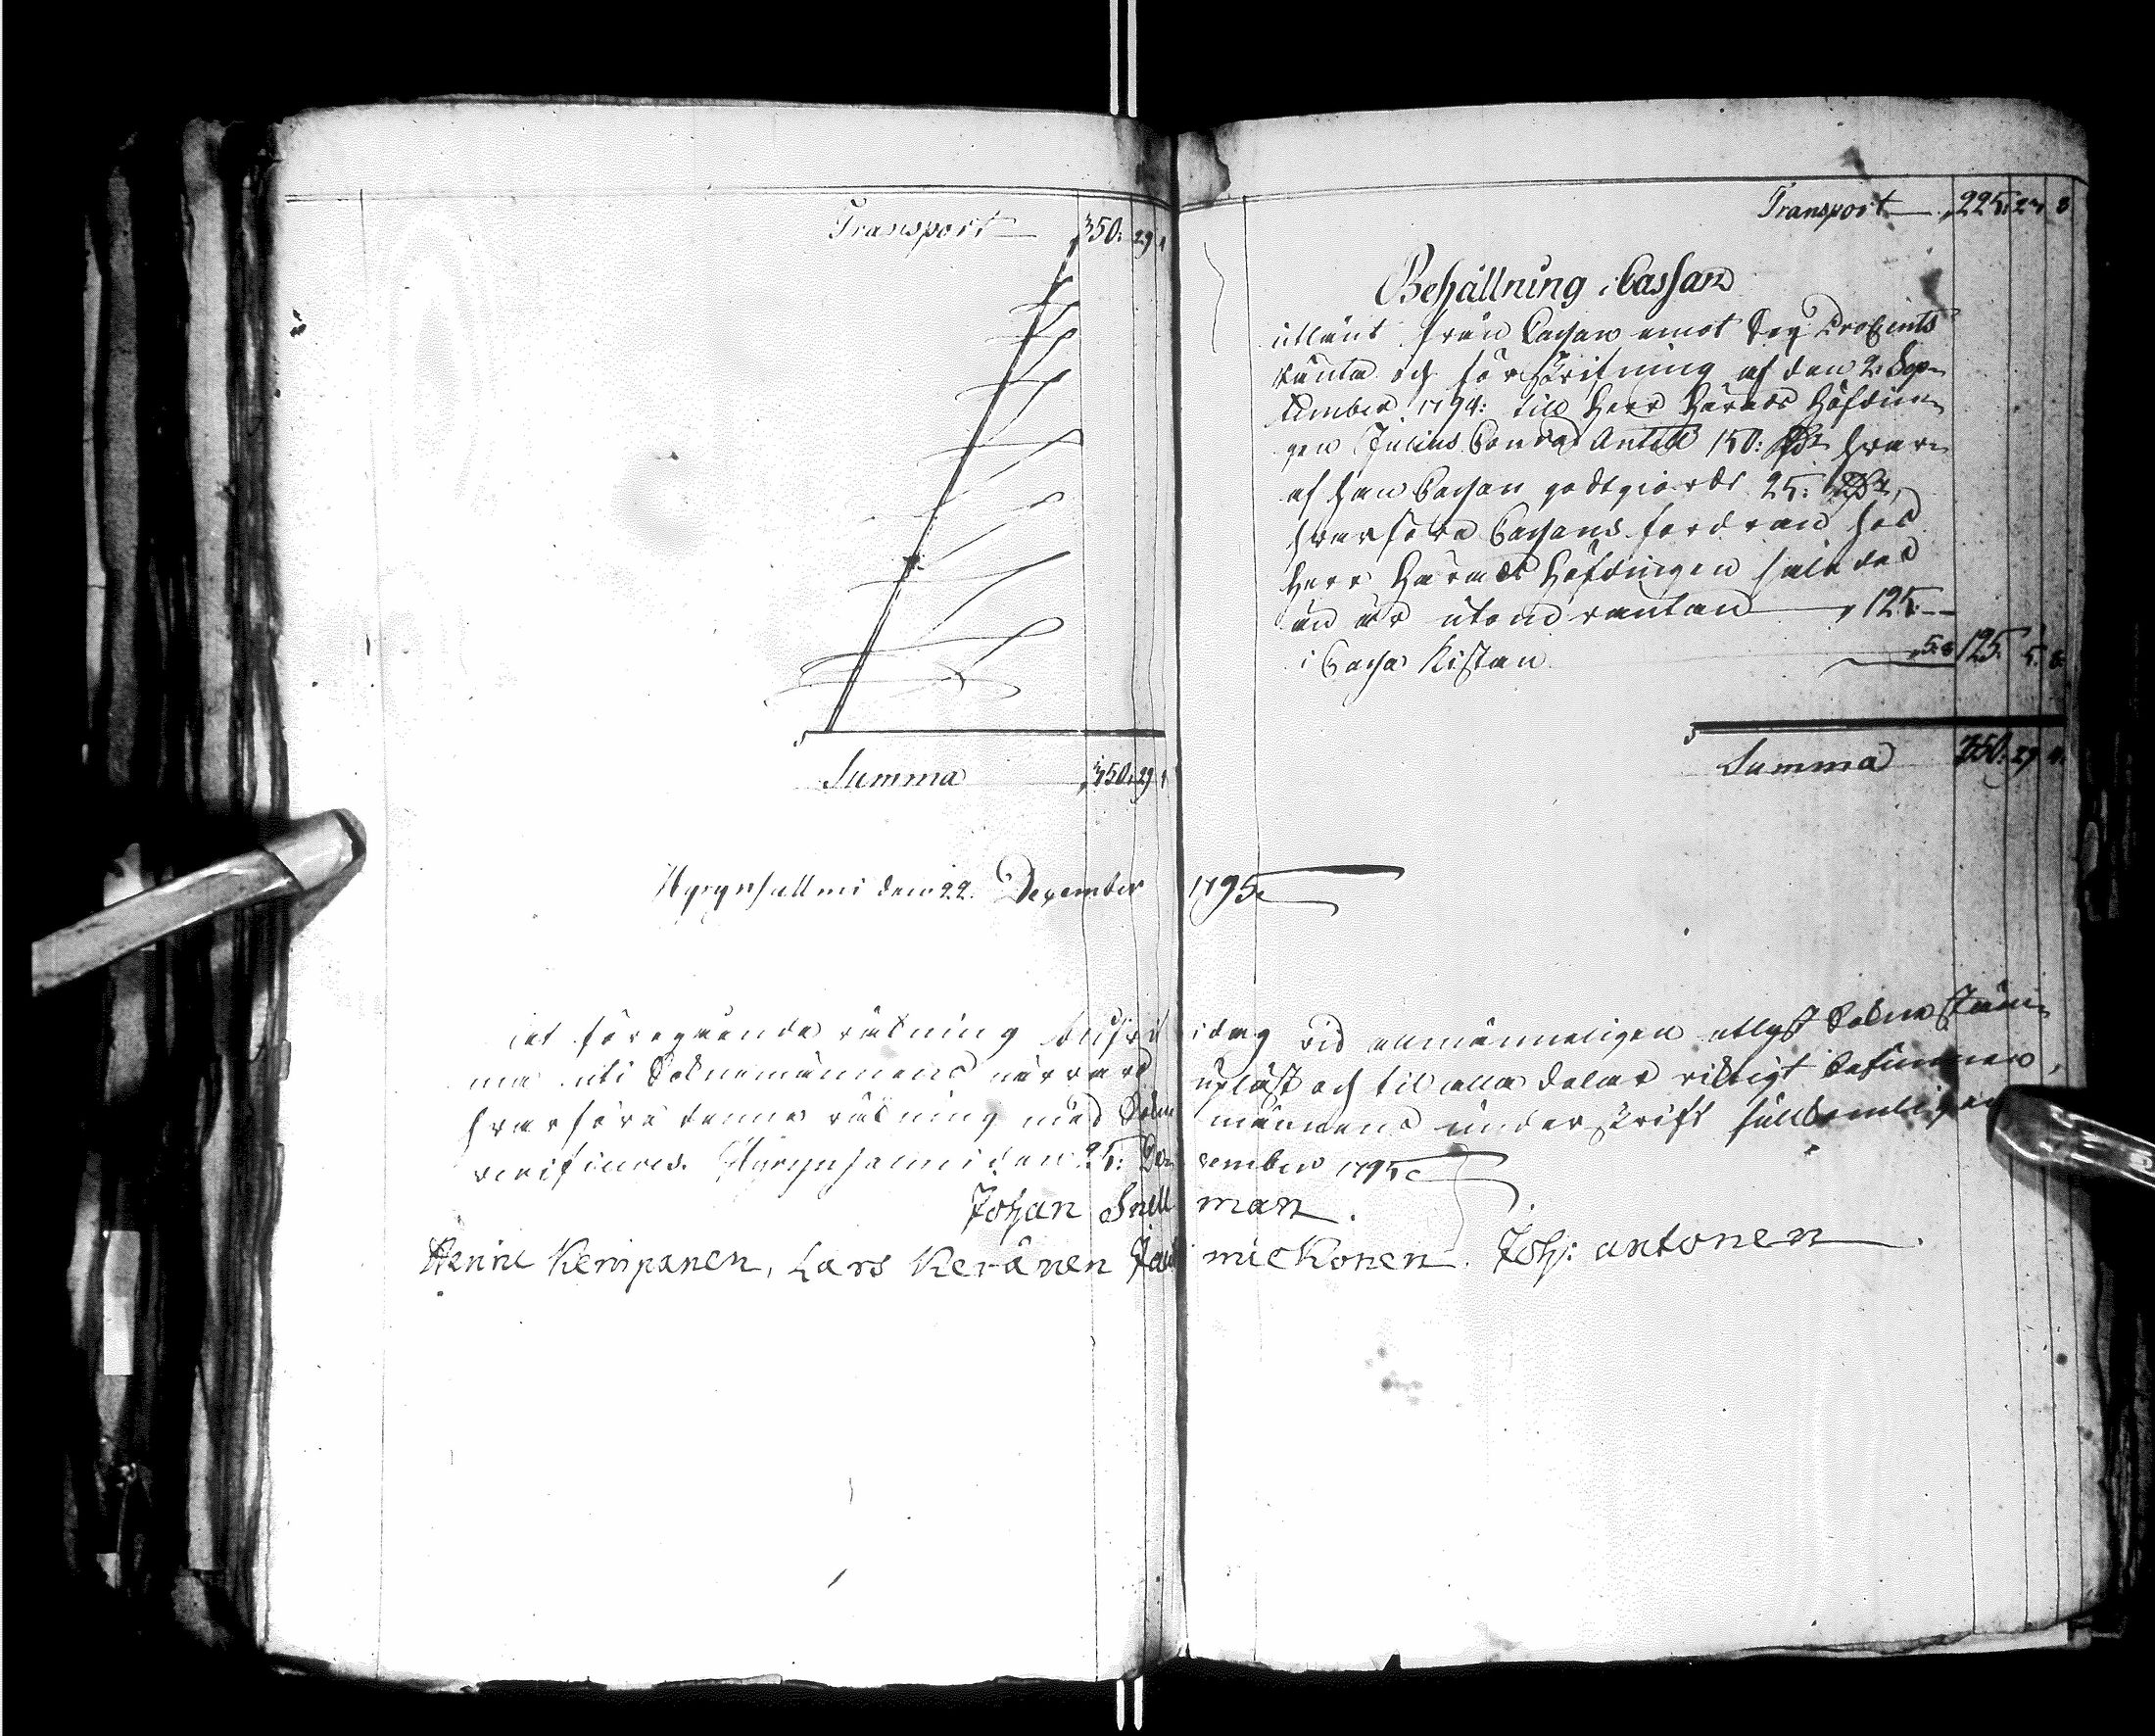 Transport 350: 29 1
Summa 350: 29 1
Transport 225: 23 8
Behållning i Cassan
utlänt från Cassan emot Sex ProCents
ränta och förskrifning af den 2: Sep-
tember 1794: till Herr Härads Höfdin-
gen Julius Conrad Antell 150: Rd hvar-
af han Cassan godtgiordt 25: Rd,
hvarföre Cassans fordran hos
Herr Härads Höfdingen således
än är utom räntan 125: —
i Cassa Kistan 5: 8 125: 5: 8:
Summa 350: 29
Hyrynsalmi den 22. December 1795
at föregående räkning blifvit idag vid allmänneligen utlyst Sokne stäm-
ma uti Soknemännens närvaro upläst och til alla delar riktigt befunnen,
hvarföre denna räkning med Sokne männens underskrift fullkomligen
verificeres. Hyrynsalmi den 25: December 1795
Johan Snellman.
Henric Kemppanen, Lars Keränen mickonen. Joh: antonen.